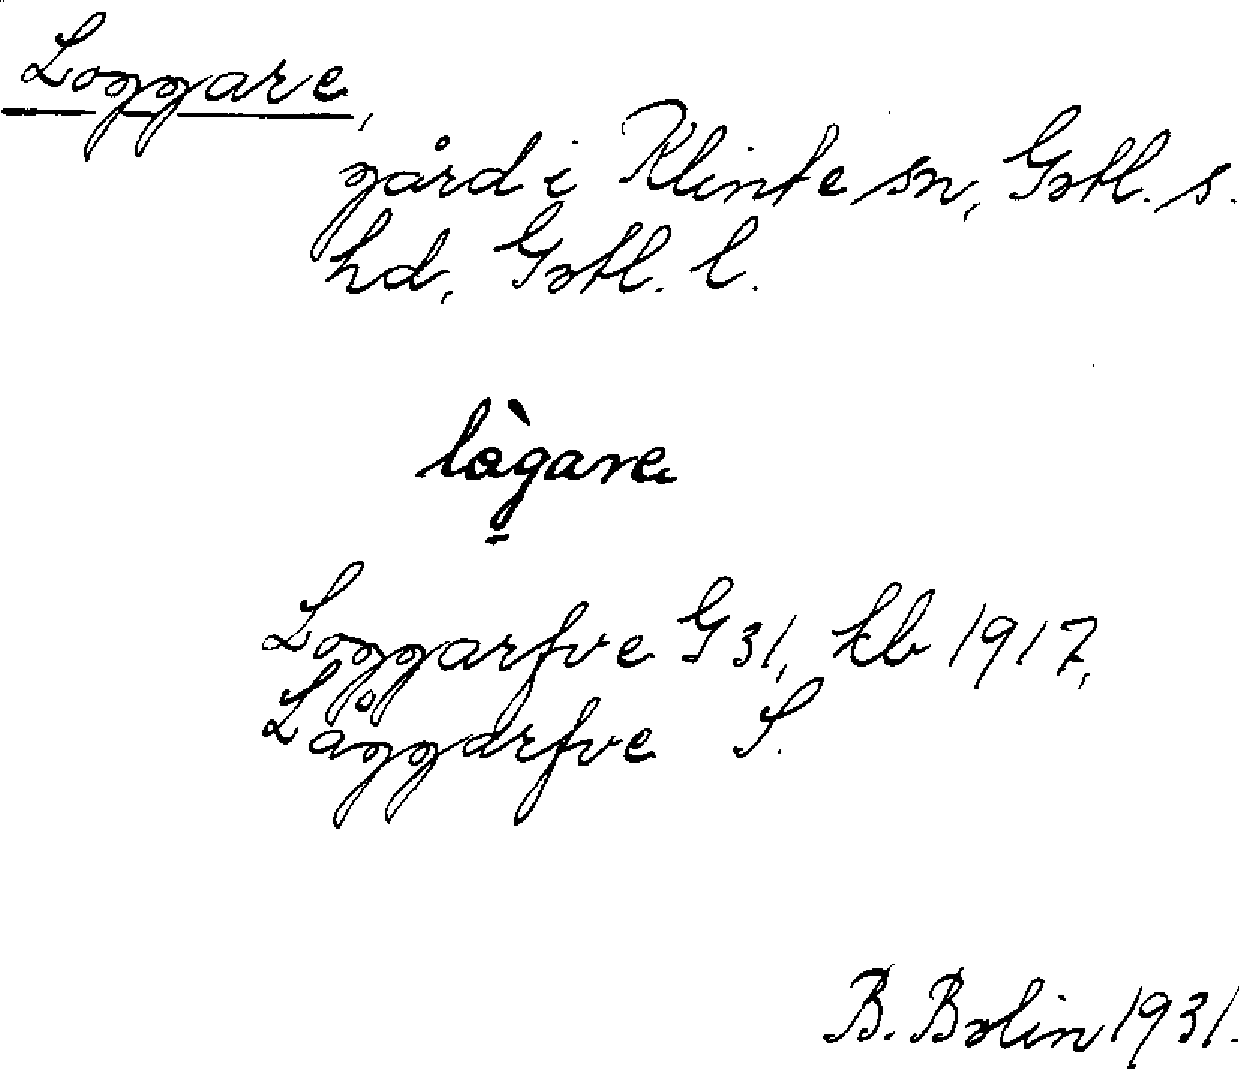 Loggare,
gård i Klinte sn, Gotl. s.
hd, Gotl. l.
lògare
Loggarfve G 31, kb 1917,
Låggarfve S.
B. Bolin 1931.